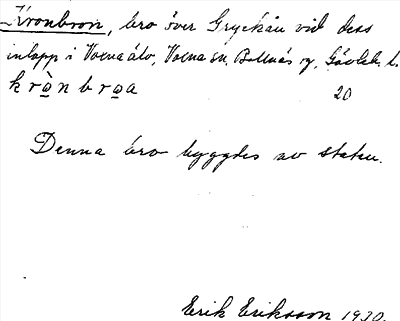 Kronbron, bro över Gryckån vid dess
inlopp i Voxnaälv, Voxna sn, Bollnäs ry, Gävleb. l.
krò̲nbro̲a 20
Denna bro byggdes av staten.
Erik Eriksson 1930.